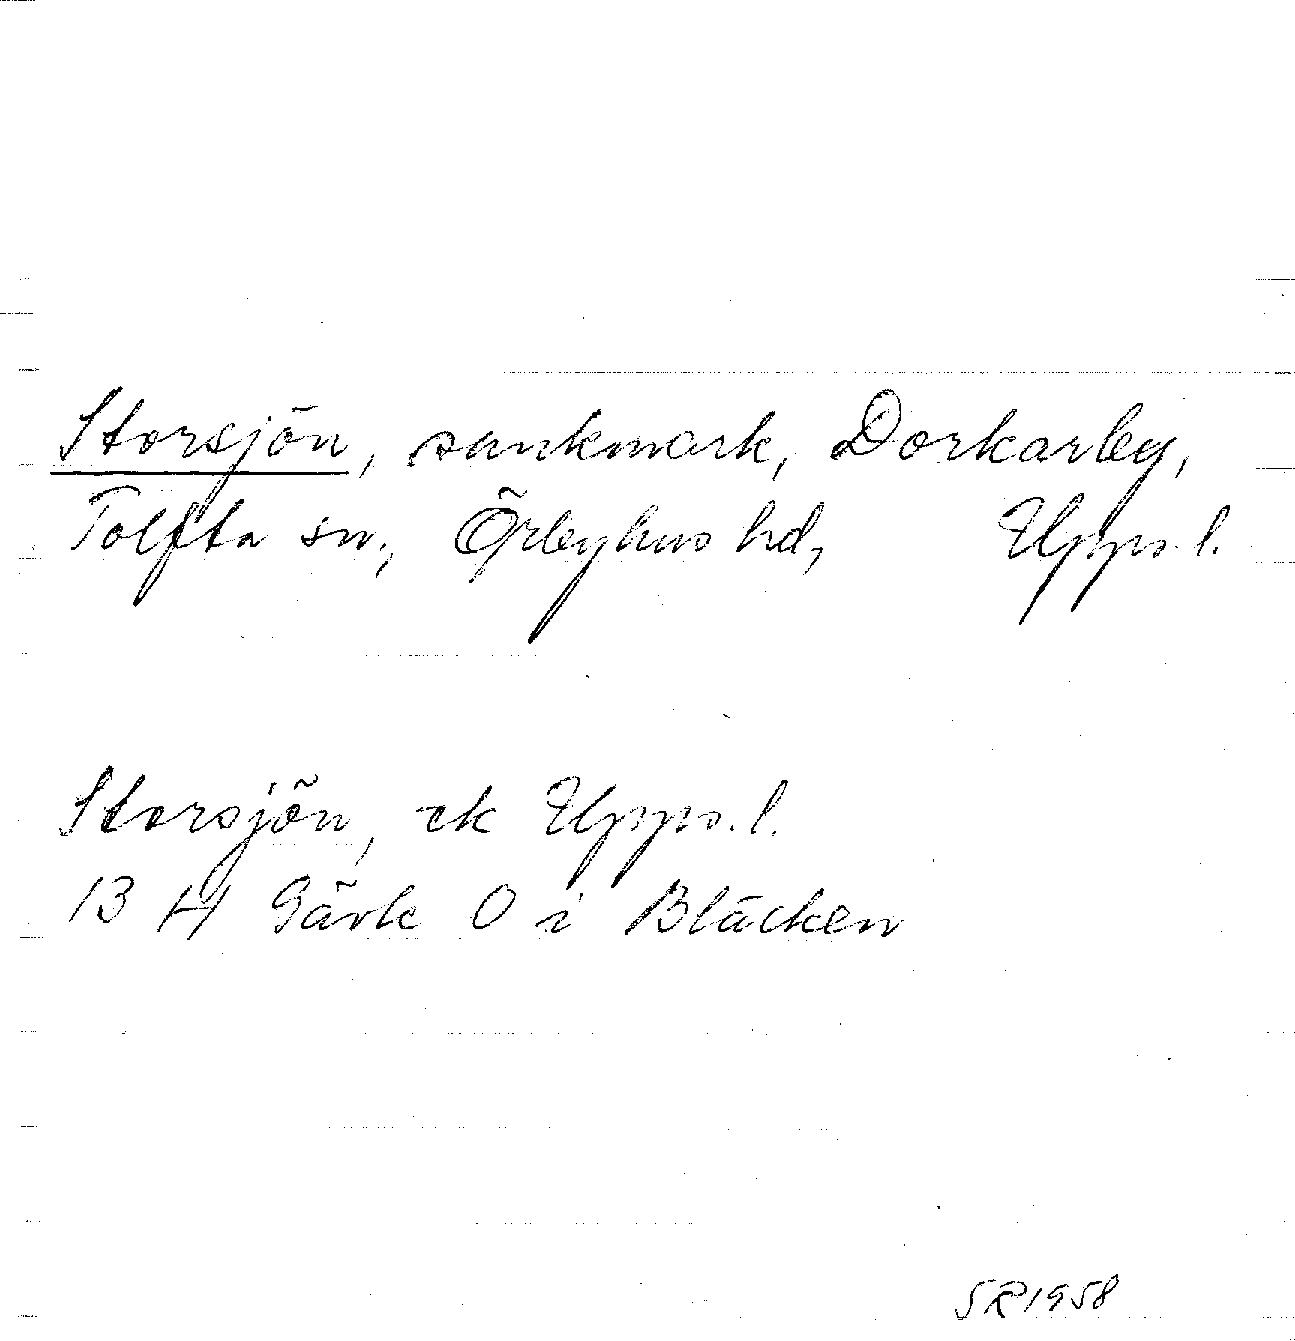 Storsjön, sankmark, Dorkarby,
Tolfta sn., Örbyhus hd, Upps. l.
Storsjön, ek Upps. l.
13 H Gävle O i Bläcken
SR 1958